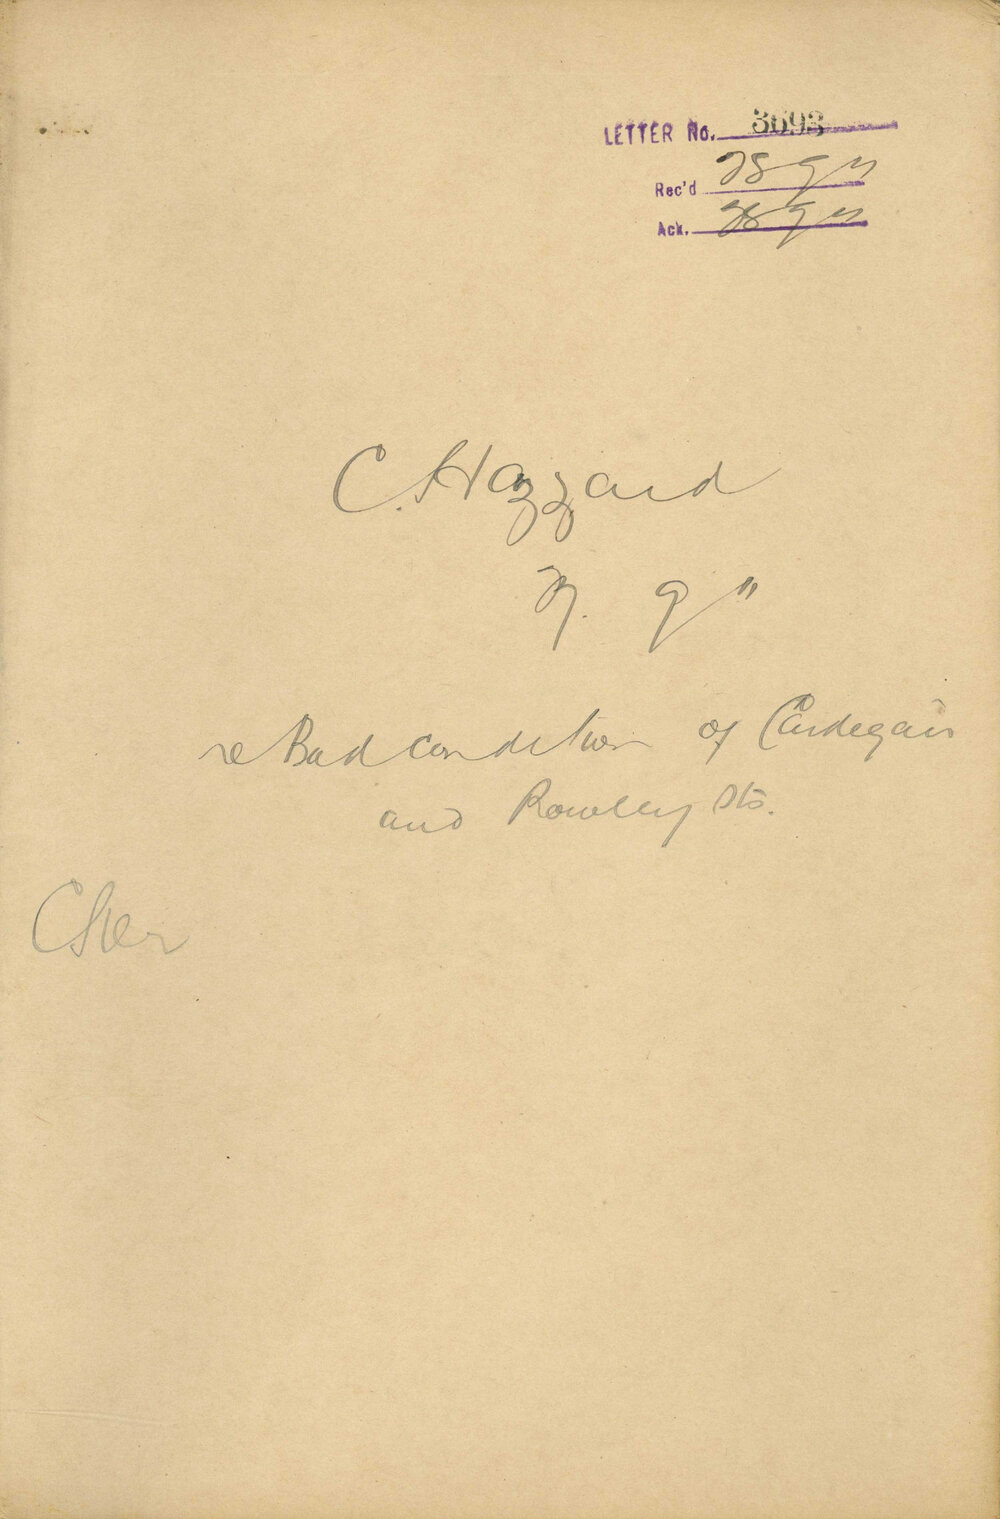 LETTER No. 3693
Rec'd 28 9 11
Ack. 28 9 11
C. Hazzard
27. 9 11
re Bad condition of Cardegan
and Rowley Sts.